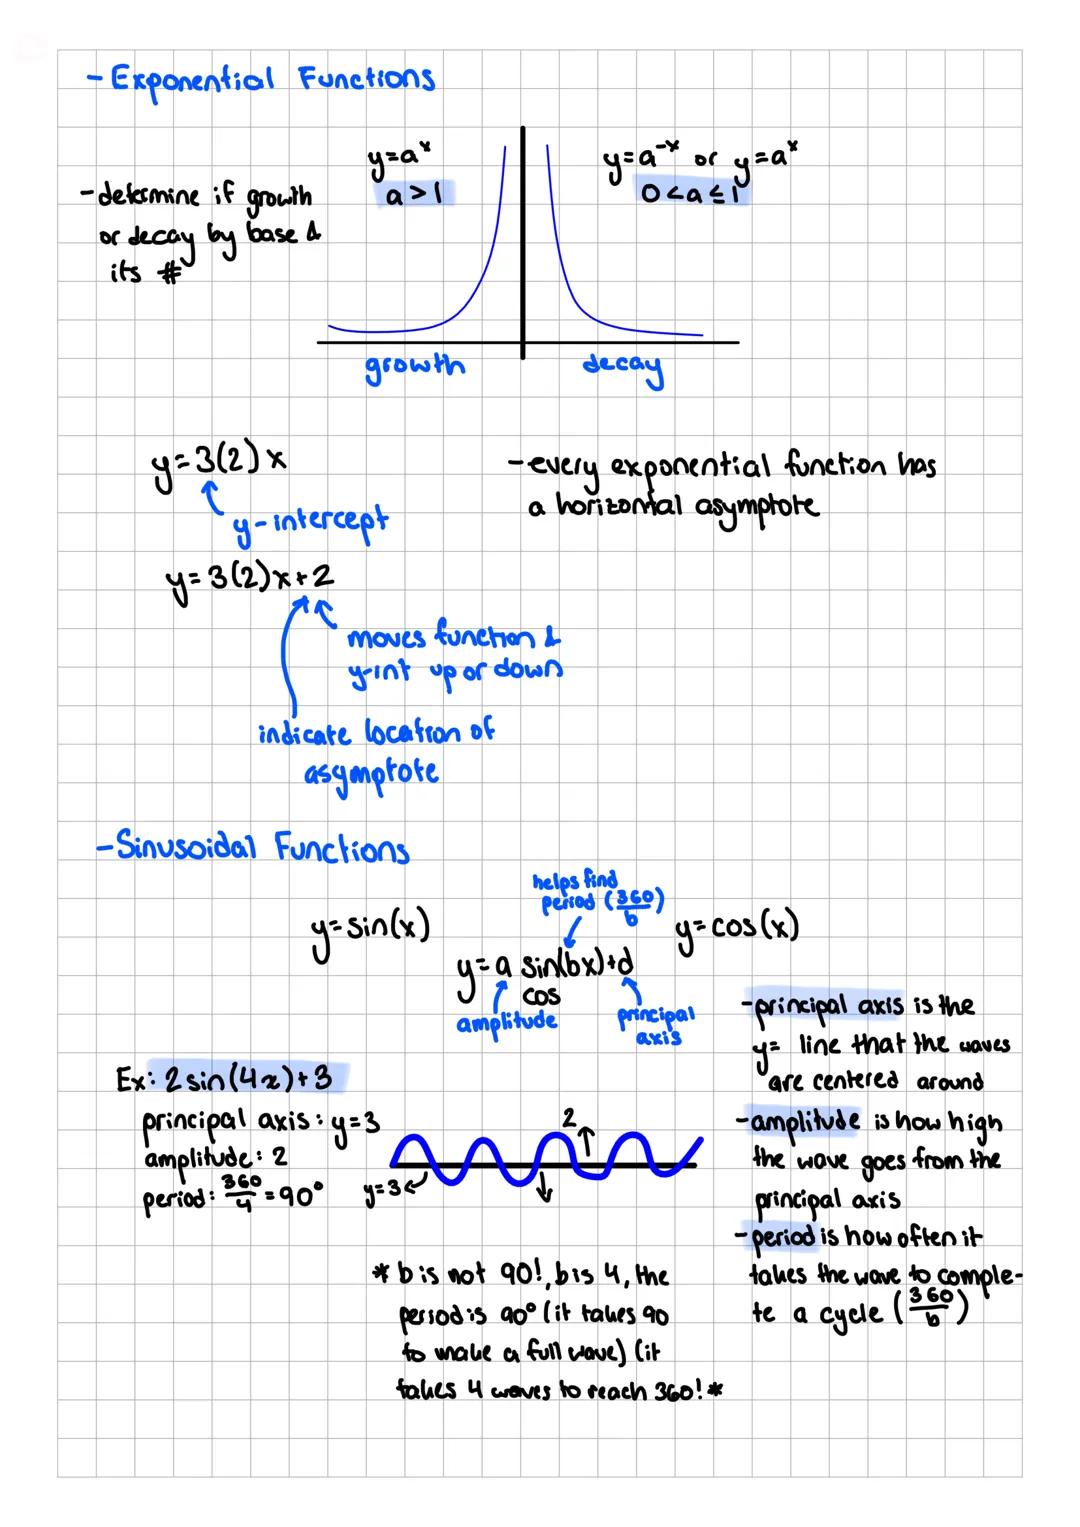 - Exponential Functions
y=aˣ
a > 1
y=a⁻ˣ or y=aˣ
0<a≤1
- determine if growth
or decay by base &
its #
growth
decay
y=3(2)x
y-intercept
- every exponential function has
a horizontal asymptote
y=3(2)x+2
moves function &
y-int up or down
indicate location of
asymptote
- Sinusoidal Functions
helps find
period (360/b)
y=sin(x)
y=cos(x)
y=a sin(bx)+d
cos
amplitude
principal
axis
- principal axis is the
y= line that the waves
are centered around
- amplitude is how high
the wave goes from the
principal axis
- period is how often it
takes the wave to comple-
te a cycle (360/b)
Ex: 2sin(4x)+3
principal axis: y=3
amplitude: 2
period: 360/4 = 90°
2
y=3
* b is not 90!, b is 4, the
period is 90° (it takes 90
to make a full wave) (it
takes 4 waves to reach 360! *